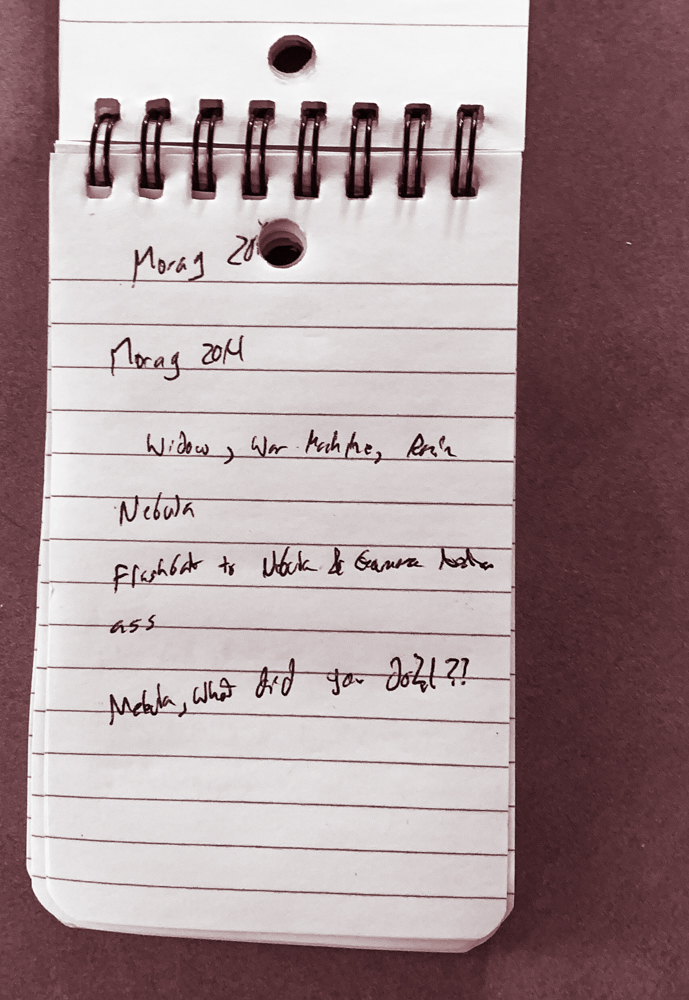 Morag 20
Morag 2014
Widow, War Machine,
Nebula
Flashback to Nebula & Gamora
ass
Nebula, what did you do?!??